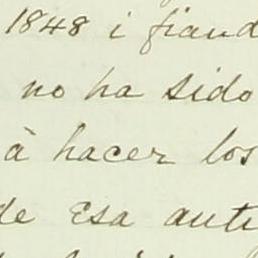 1848 i fiand
no ha sido
à hacer los
de esa anti